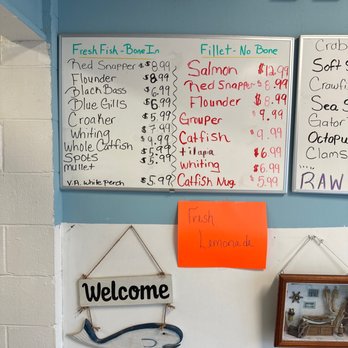 Fresh Fish - Bone In
Red Snapper $8.99
Flounder $8.99
Black Bass $6.99
Blue Gills $6.99
Croaker $5.99
Whiting $7.99
Whole Catfish $9.99
Spots $5.99
mullet $5.99
V.A. White Perch $5.99
Fillet - No Bone
Salmon $12.99
Red Snapper $8.99
Flounder $8.99
Grouper $9.99
Catfish $9.99
tilapia $6.99
whiting $6.99
Catfish Nug. $5.99
Crab
Soft S
Crawfi
Sea S
Gator
Octopu
Clams
RAW
Fresh
Lemonade
Welcome